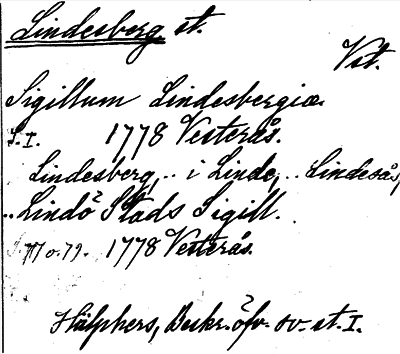 Lindesberg st.
Vst.
Sigillum Lindesbergiæ.
S.I. 1778 Vesterås.
Lindesberg, .. i Linde, .. Lindesås,
.. Lindö Stads Sigill.
77 o. 79. 1778 Vesterås.
Hülphers, Beskr. öfv. sv. st. I.